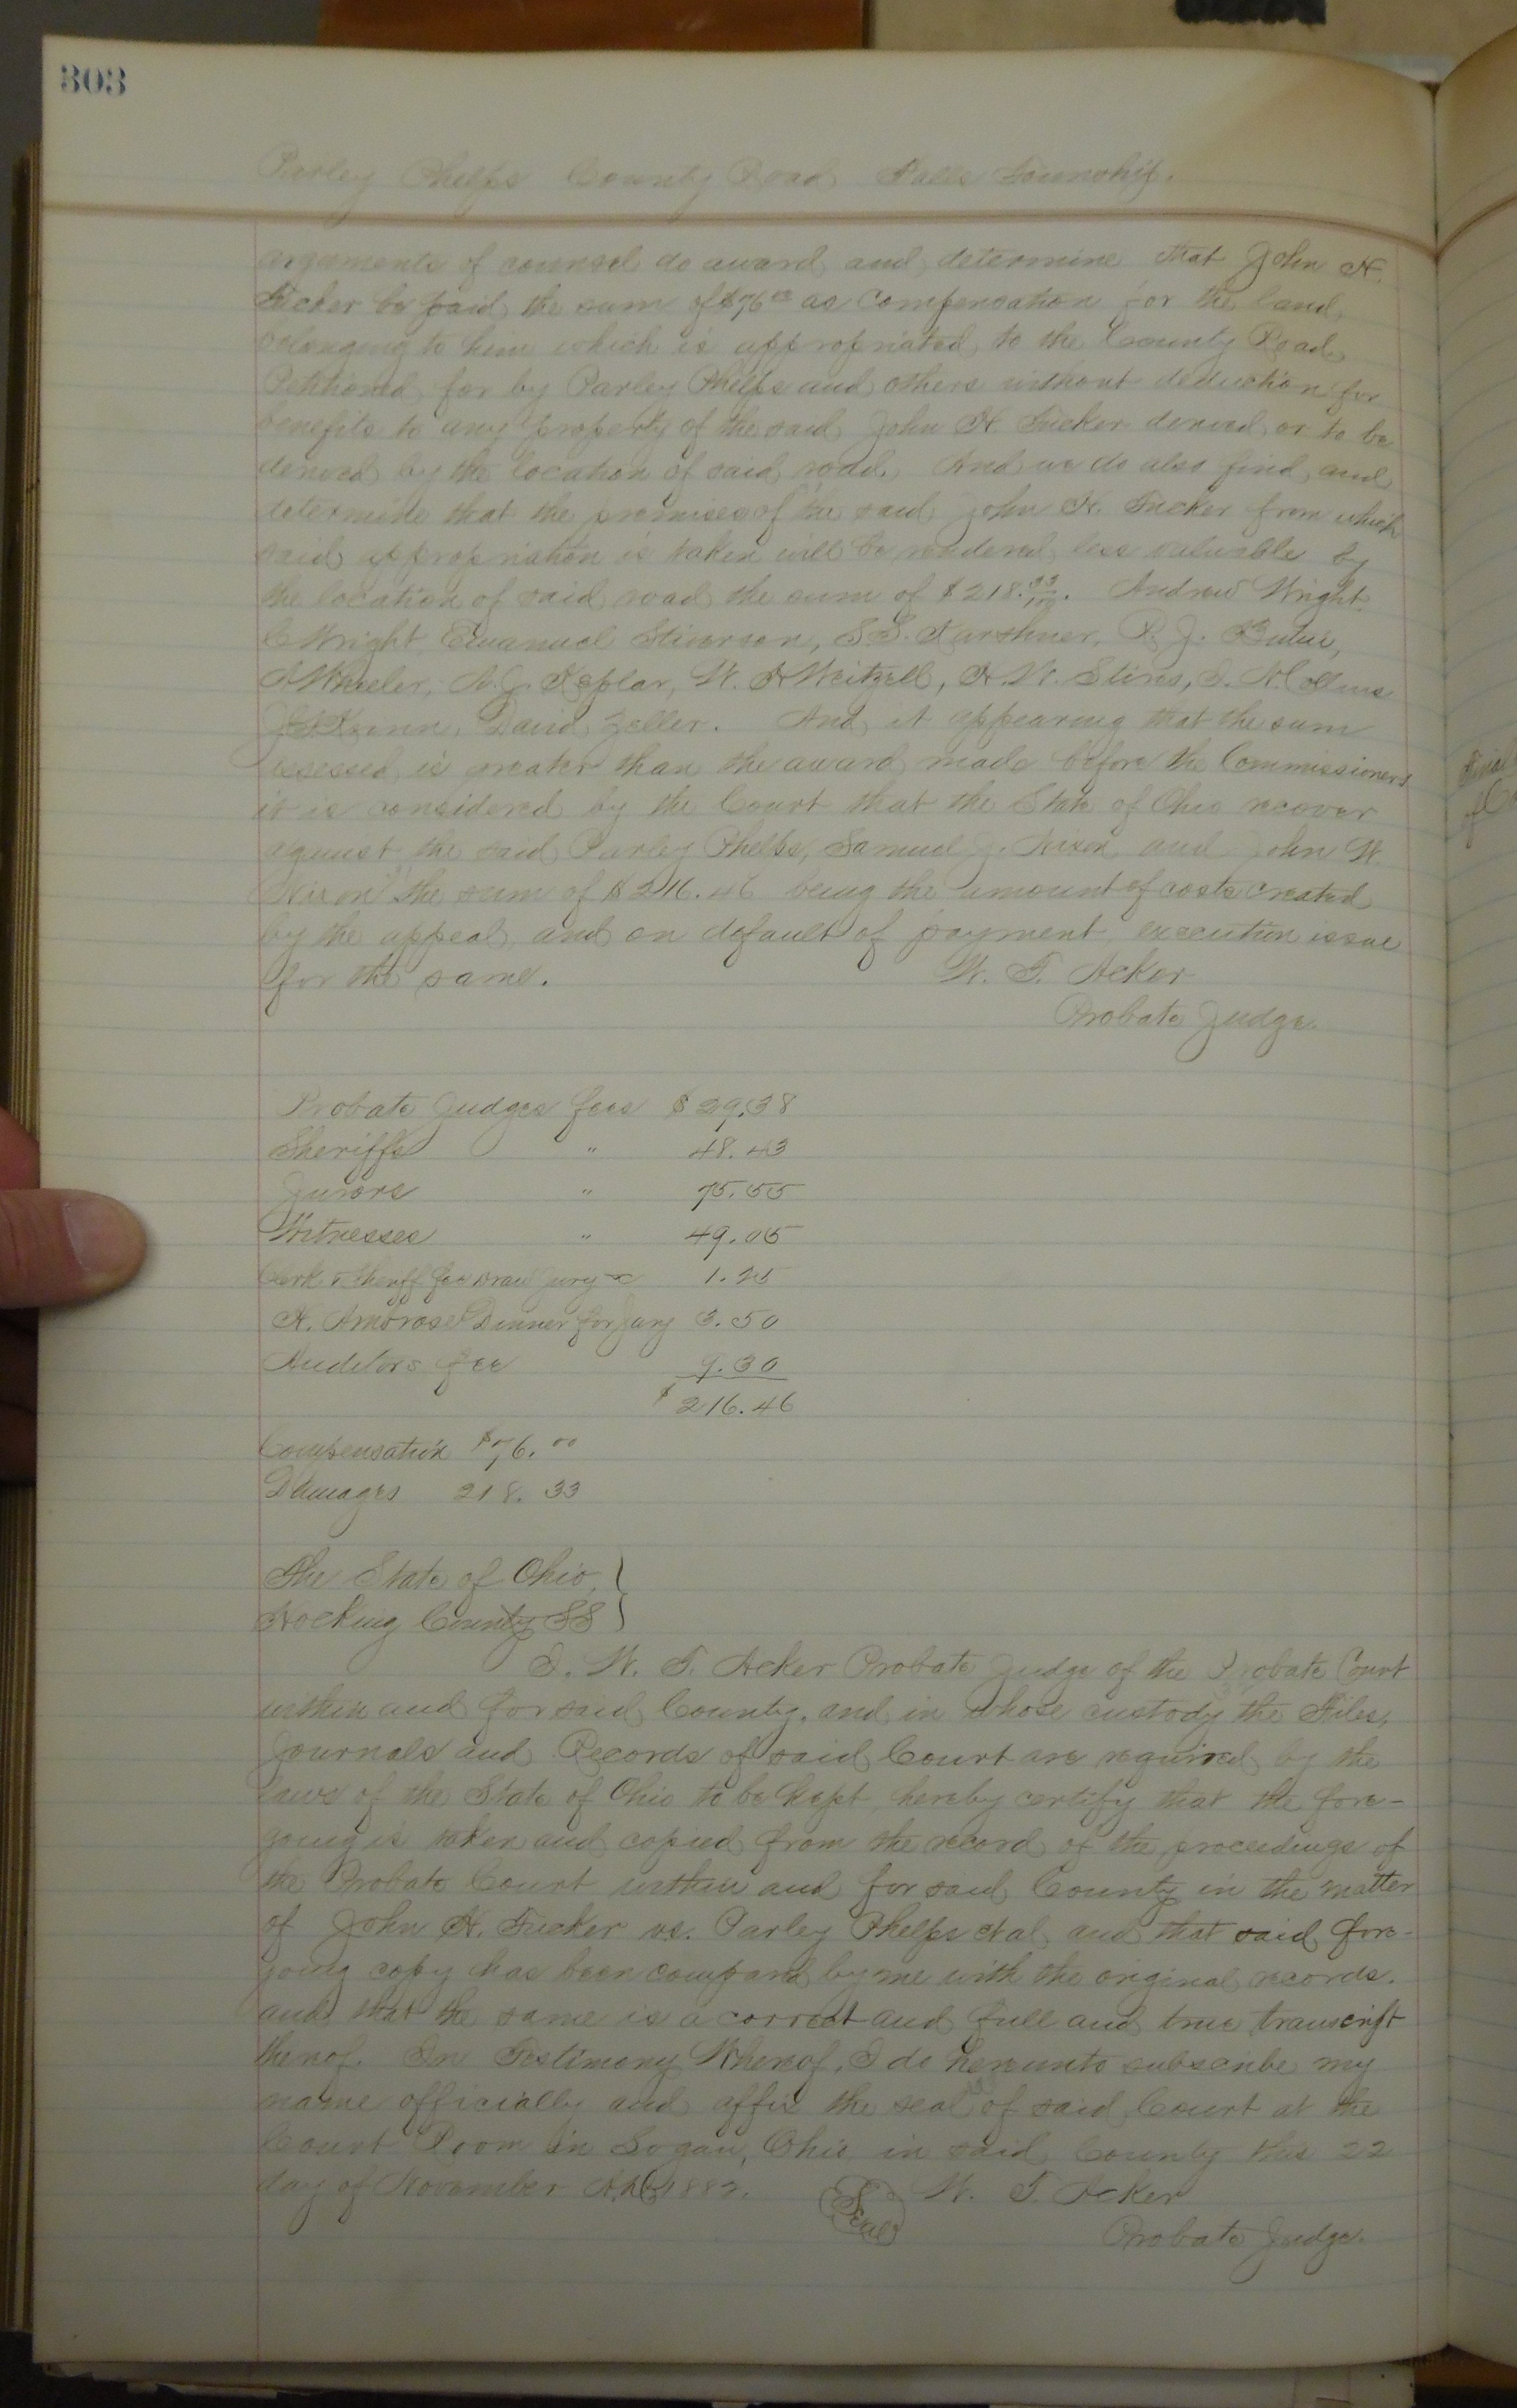 303
Parley Phelps County Road Falls Township.
arguments of counsel do award and determine that John H.
Tucker be paid the sum of $76.00 as compensation for the land
belonging to him which is appropriated to the County Road
Petitioned for by Parley Phelps and others without deduction for
benefits to any property of the said John H Tucker derived or to be
derived by the location of said road. And we do also find and
determine that the premises of the said John H. Tucker from which
said appropriation is taken will be rendered less valuable by
the location of said road the sum of $218.33/100. Andrew Wright
C Wright, Emanuel Stiverson, S.S. Karshner, R. J.
A Wheeler, A. J. Keplar, W. H Weitzell, H. W. Stires, I. N. Collins
David Zeller. And it appearing that the sum
assessed is greater than the award made before the Commissioners
it is considered by the Court that the State of Ohio recover
against the said Parley Phelps, Samuel J. Nixon and John W
Nixon the sum of $216.46 being the amount of costs created
by the appeal and on default of payment execution issue
for the same. W. T. Acker
Probate Judge.
Probate Judges fees $29.38
Sheriffs " 48.43
Jurors " 75.55
Witnesses " 49.05
Clerk & Sheriff fee draw jury 1.25
H. Ambrose Dinner for Jury 3.50
Auditors fee 9.30
$216.46
Compensation $76.00
Damages 218.33
The State of Ohio, }
Hocking County SS }
I, W. T. Acker Probate Judge of the Probate Court
within and for said County, and in whose custody the Files,
Journals and Records of said Court are required by the
laws of the State of Ohio to be kept, hereby certify that the fore-
going is taken and copied from the record of the proceedings of
the Probate Court within and for said County in the matter
of John H. Tucker vs. Parley Phelps et al and that said fore-
going copy has been compared by me with the original records.
and that the same is a correct and full and true transcript
thereof. In Testimony Whereof, I do hereunto subscribe my
name officially and affix the seal of said Court at the
Court Room in Logan, Ohio in said County this 22
day of November A.D. 1882. Seal W. T. Acker
Probate Judge.